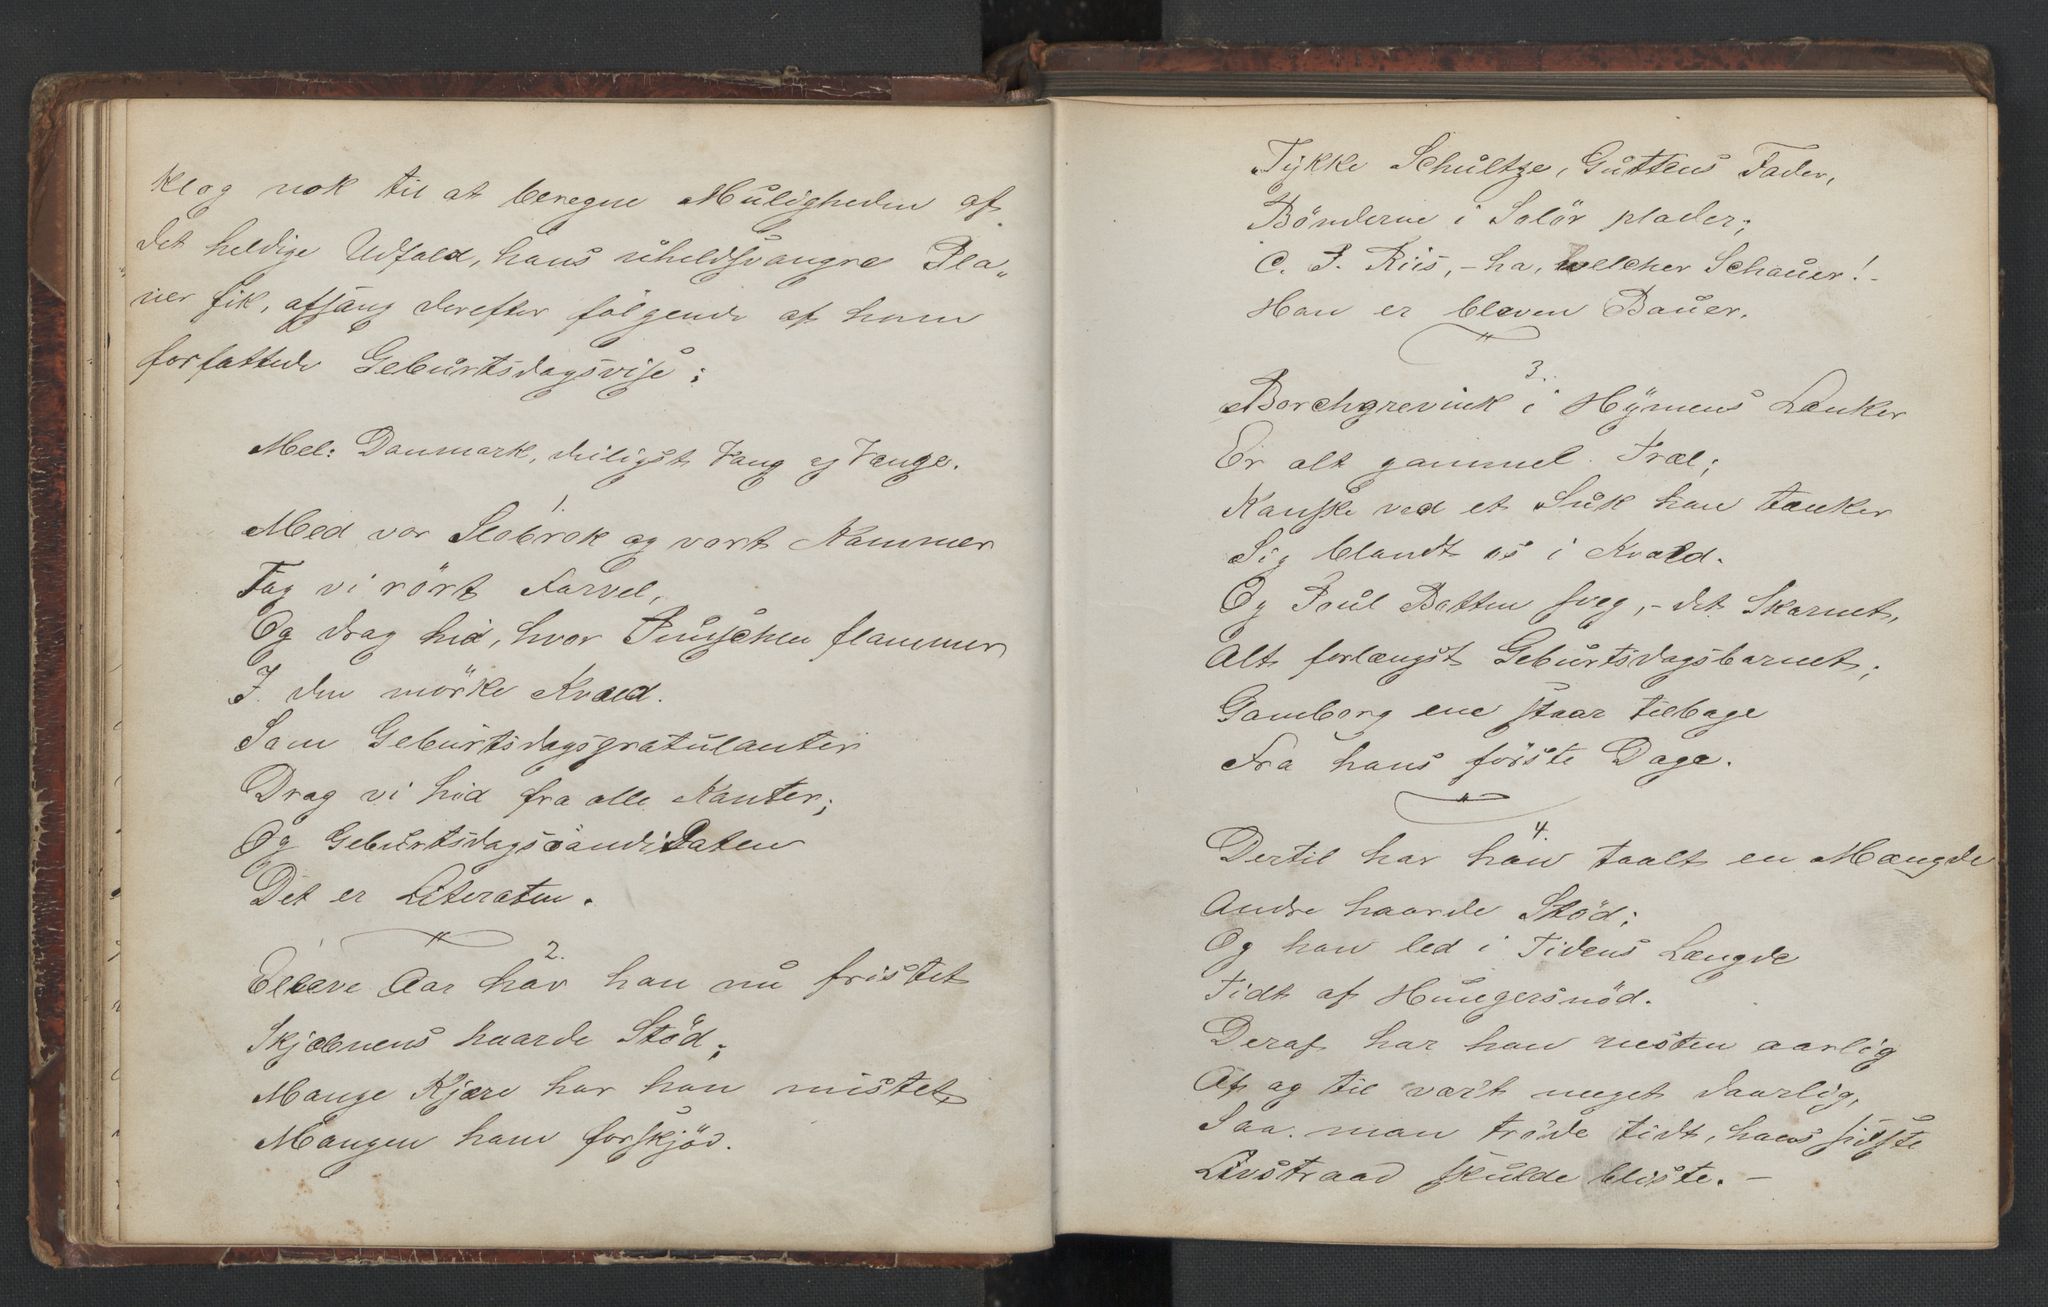 klog nok til at beregne Muligheden af
det heldige Udfald, hans uheldsvangre Pla„
„ner fik, afsang derefter følgende af ham
forfattede Geburtsdagsvise:
Mel: Danmark, deiligst Vang og Vænge.
1
Med vor Slobrok og vort Kammer
Tog vi rört Farvel,
Og drog hid, hvor Punschen flammer
I den mörke Kvæld.
Som Geburtsdagsgratulanter
Drog vi hid fra alle Kanter;
Og Geburtsdagscandidaten
Det er Literaten.
2.
Elleve Aar har han nu fristet
Skjæbnens haarde Stöd;
Mange Kjære har han mistet,
Mangen ham forskjöd.
Tykke Schultze, Guttens Fader,
Bönderne i Solör plader;
C. P. Riis, - ha, welcher Schauer! -
Han er bleven Bauer.
3.
Borchgrevink i Hymens Lænker
Er alt gammel Træl;
Kanske ved et Suk han tænker
Sig blandt os i Kvæld.
Og Poul Botten sveg, - det Skarnet,
Alt forlængst Geburtsdagsbarnet;
Gamborg ene staar tilbage
Fra hans förste Dage.
4.
Dertil har han taalt en Mængde
Andre haarde Stöd;
Og han led i Tidens Længde
Tidt af Hungersnöd.
Deraf har han næsten aarlig
Af og til vær't meget daarlig,
Saa man tröde tidt, hans sidste
Livstraad skulde briste. -